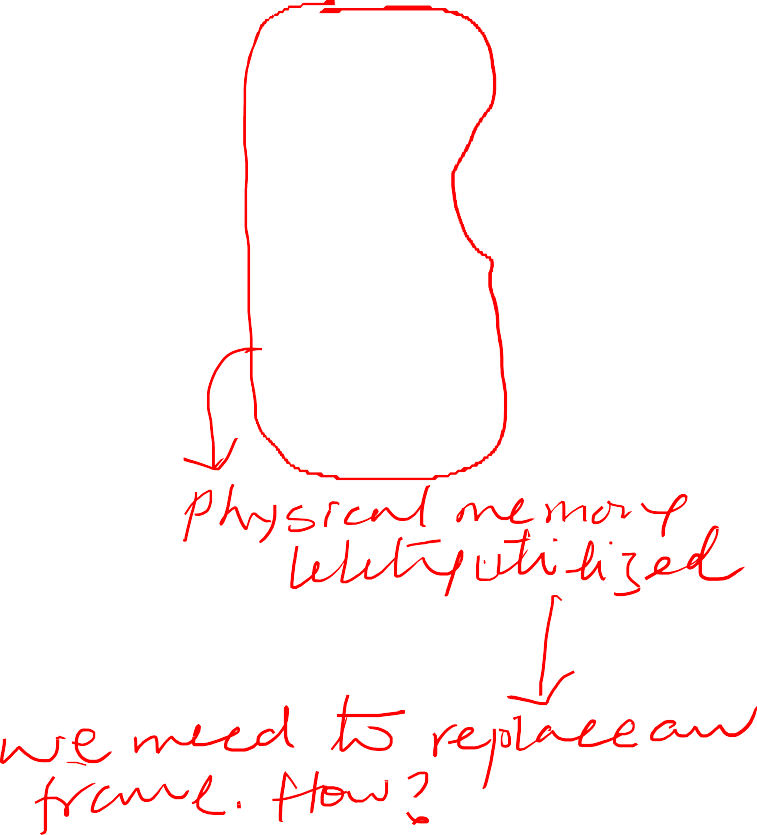 physical memory
utilized
we need to replace an
frame. How?